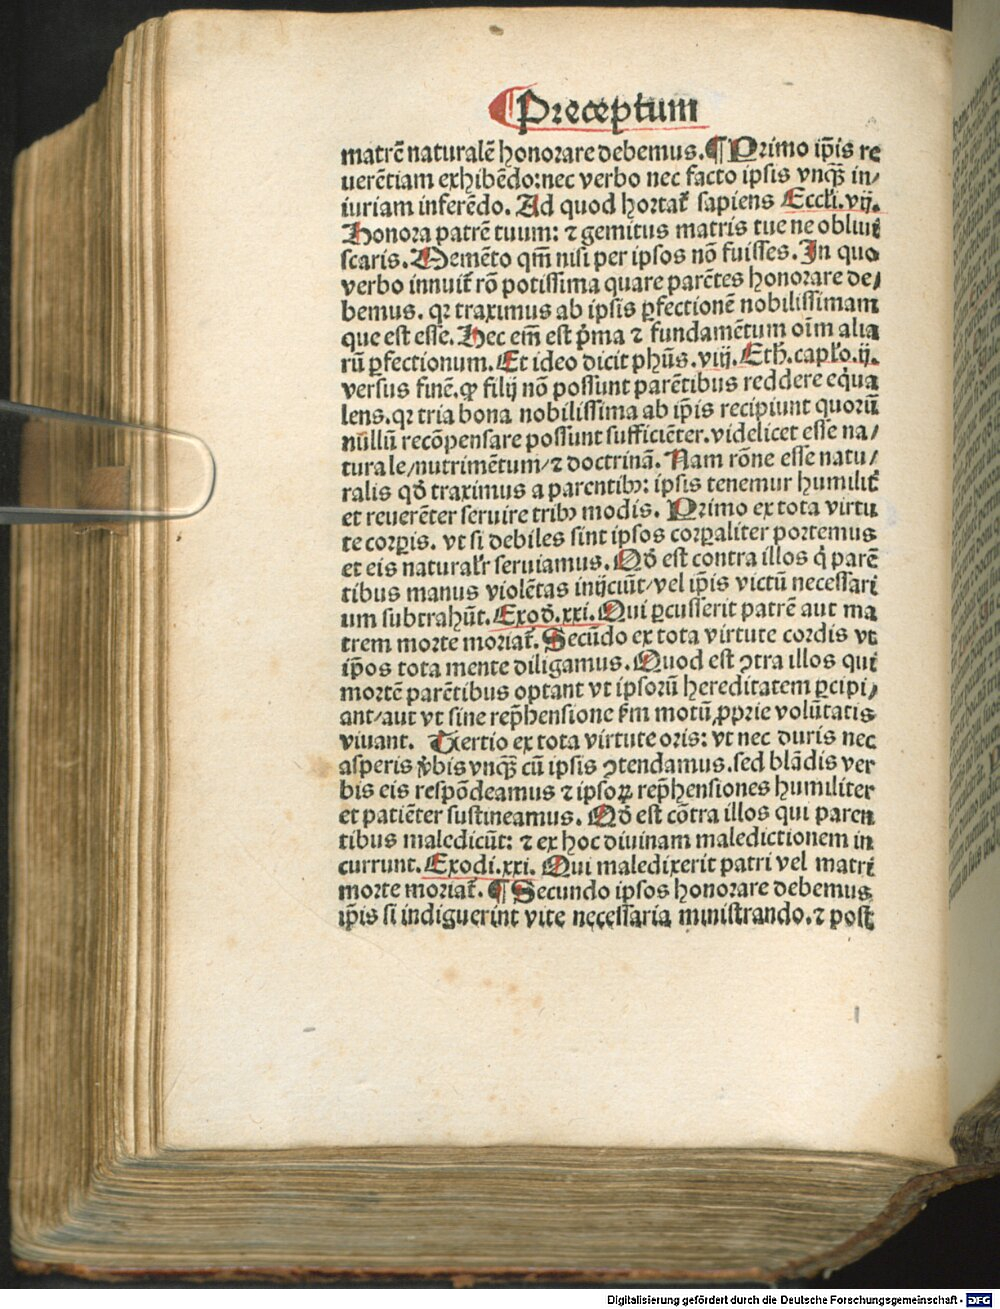 ¶ Preceptum
matrē naturalē honorare debemus. ¶ Primo ip̄is re
uerētiam exhibēdo: nec verbo nec facto ipsis vnq̄ꝫ in/
iuriam inferēdo. Ad quod hortat᷑ sapiens Eccli. vij.
Honora patrē tuum: ⁊ gemitus matris tue ne obliui
scaris. Memēto qm̄ nisi per ipsos nō fuisses. In quo
verbo innuit᷑ rō potissima quare parētes honorare de/
bemus. qꝛ traximus ab ipsis ꝑfectionē nobilissimam
que est esse. Hec em̄ est p̄ma ⁊ fundamētum oīm alia
rū ꝑfectionum. Et ideo dicit phūs. viij. Eth. capło. ij.
versus finē. ꝙ filij nō possunt parētibus reddere eq̇ua
lens. qꝛ tria bona nobilissima ab ip̄is recipiunt quorū
nullū recōpensare possunt sufficiēter. videlicet esse na/
turale/nutrimētum/⁊ doctrinā. Nam rōne esse natu/
ralis qd̄ traximus a parentibꝫ: ipsis tenemur humilit᷑
et reuerēter seruire tribꝫ modis. Primo ex tota virtu
te corꝑis. vt si debiles sint ipsos corꝑaliter portemus
et eis naturalr̄ seruiamus. Qd̄ est contra illos q̇ parē
tibus manus violētas inijciūt/vel ip̄is victū necessari
um subtrahūt. Exod. xxi. Qui ꝑcusserit patrē aut ma
trem morte moriat᷑. Secūdo ex tota virtute cordis vt
ip̄os tota mente diligamus. Quod est ꝯtra illos qui
mortē parētibus optant vt ipsorū hereditatem ꝑcipi/
ant/aut vt sine rep̄hensione s̄m motū ꝓprie volūtatis
viuant. Tertio ex tota virtute oris: vt nec duris nec
asperis v̄bis vnq̄ꝫ cū ipsis ꝯtendamus. sed blādis ver
bis eis respōdeamus ⁊ ipsoꝝ rep̄hensiones humiliter
et patiēter sustineamus. Qd̄ est cōtra illos qui paren
tibus maledicūt: ⁊ ex hoc diuinam maledictionem in
currunt. Exodi. xxi. Qui maledixerit patri vel matri
morte moriat᷑. ¶ Secundo ipsos honorare debemus
ip̄is si indiguerint vite necessaria ministrando. ⁊ post
Digitalisierung gefördert durch die Deutsche Forschungsgemeinschaft - DFG